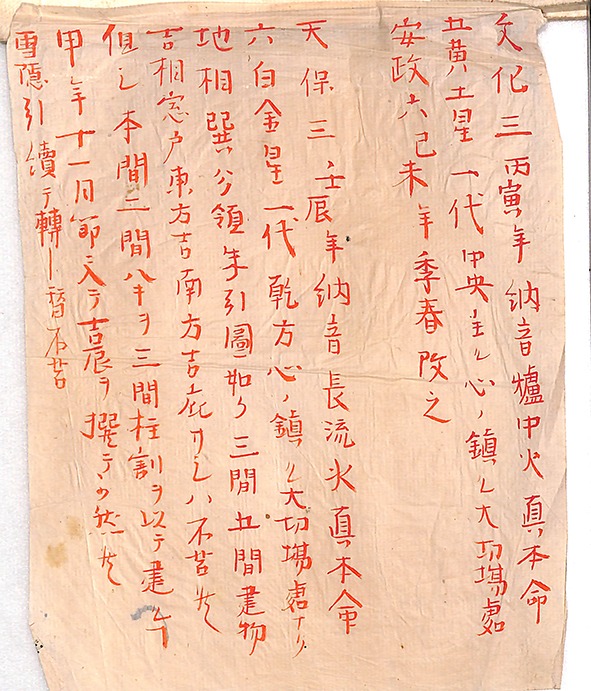 文化三丙寅年納音爐中火真本命
五黄土星一代中央主ル心ノ鎮ル大切塲處
安政六己未年季春改之
天保三壬辰年納音長流水真本命
六白金星一代乾方心ノ鎮ル大切塲處ナリ
地相巽分領朱引圖如ク三間五間建物
吉相窓戸東方吉南方吉庇ナレハ不苦
但シ本間二間八寸ヲ三間柱割ヲ以テ建
甲年十一月節ニ入テ吉辰ヲ撰テ可然
雪隠引續テ轉シ替不苦